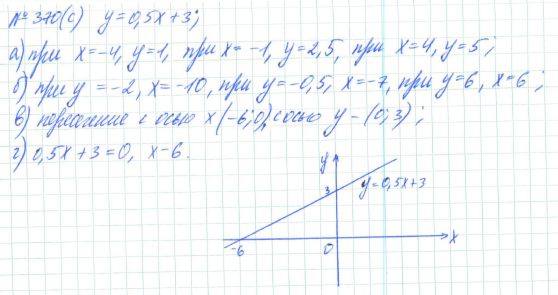 № 370(с) y=0,5x+3;
а) при x=-4, y=1, при x=-1, y=2,5, при x=4, y=5;
б) при y=-2, x=-10, при y=-0,5, x=-7, при y=6, x=6;
в) пересечение с осью x (-6;0), с осью y - (0;3);
г) 0,5x+3=0, x-6.
y
3
y=0,5x+3
-6
0
x